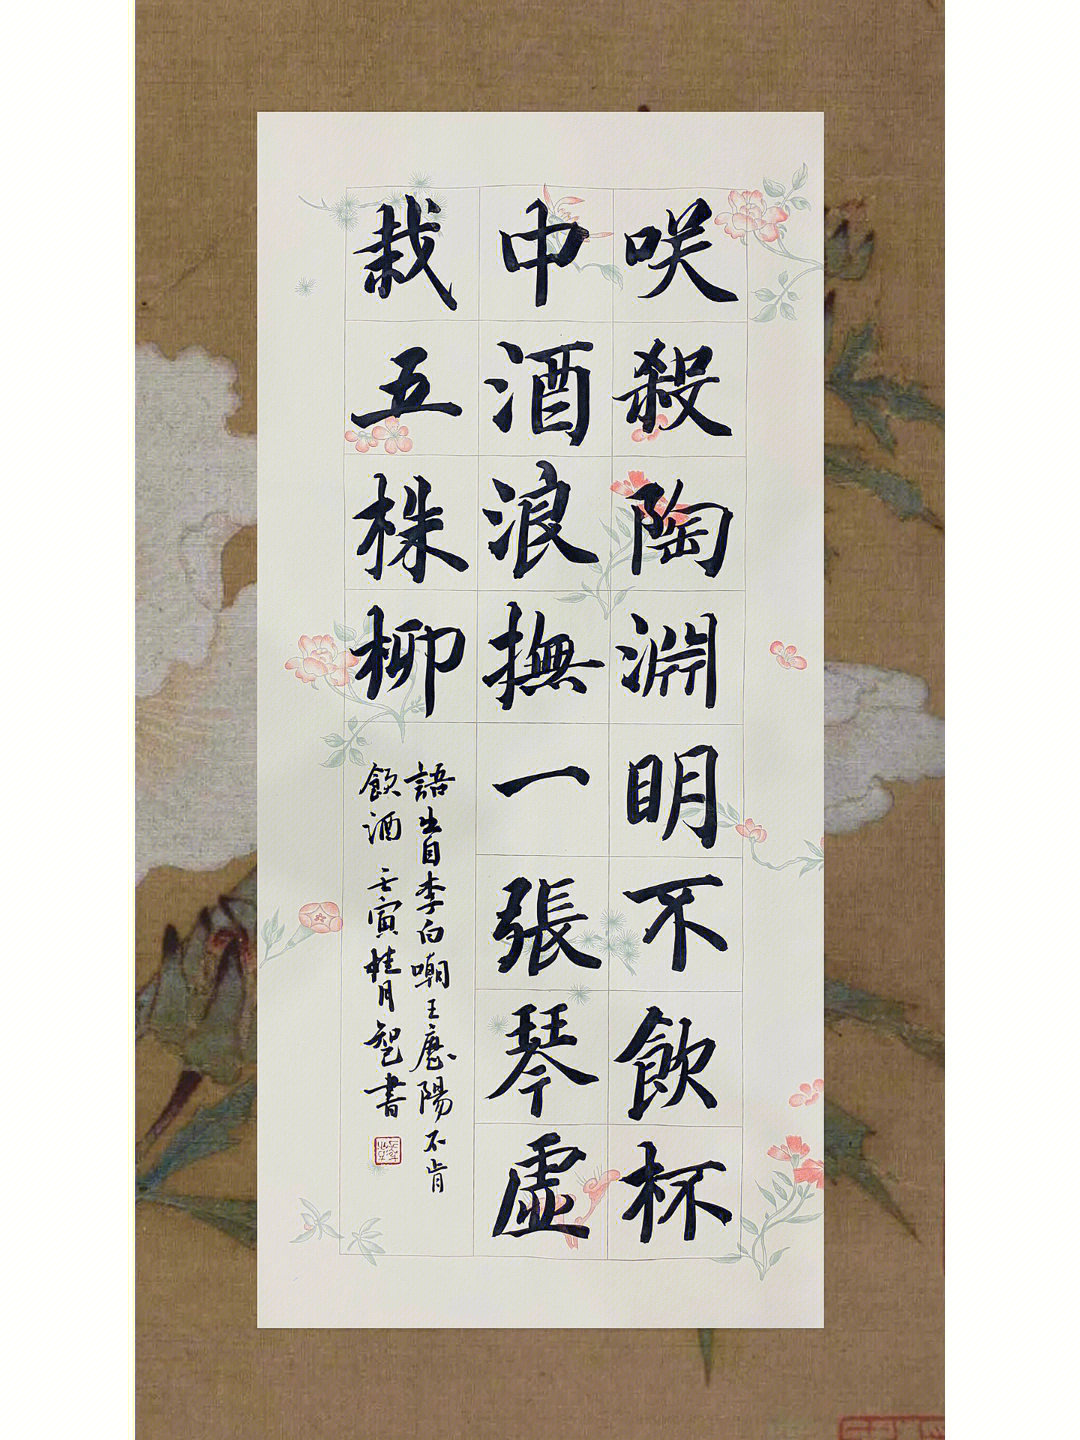 咲殺陶淵明不飲杯
中酒浪撫一張琴虛
栽五株柳
語出自李白嘲王歷陽不肯
飲酒 壬寅桂月智書